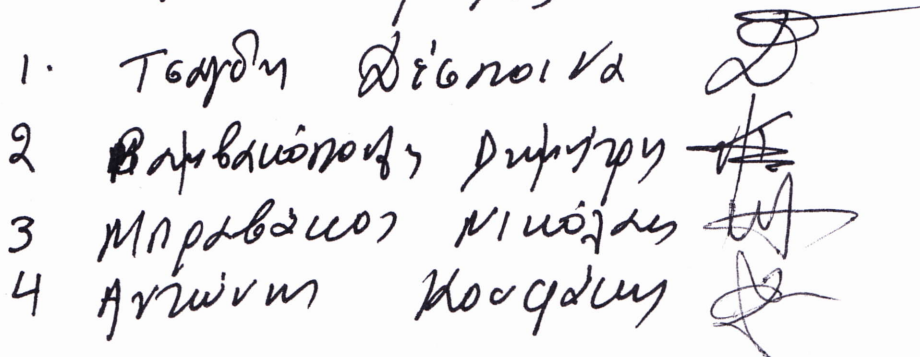 1. Τσαγδη Δέσποινα
2 Βαμβακόπουλος Δημήτρης
3 Μπραβάκος Νικόλαος
4 Αντώνης Κουφάκης